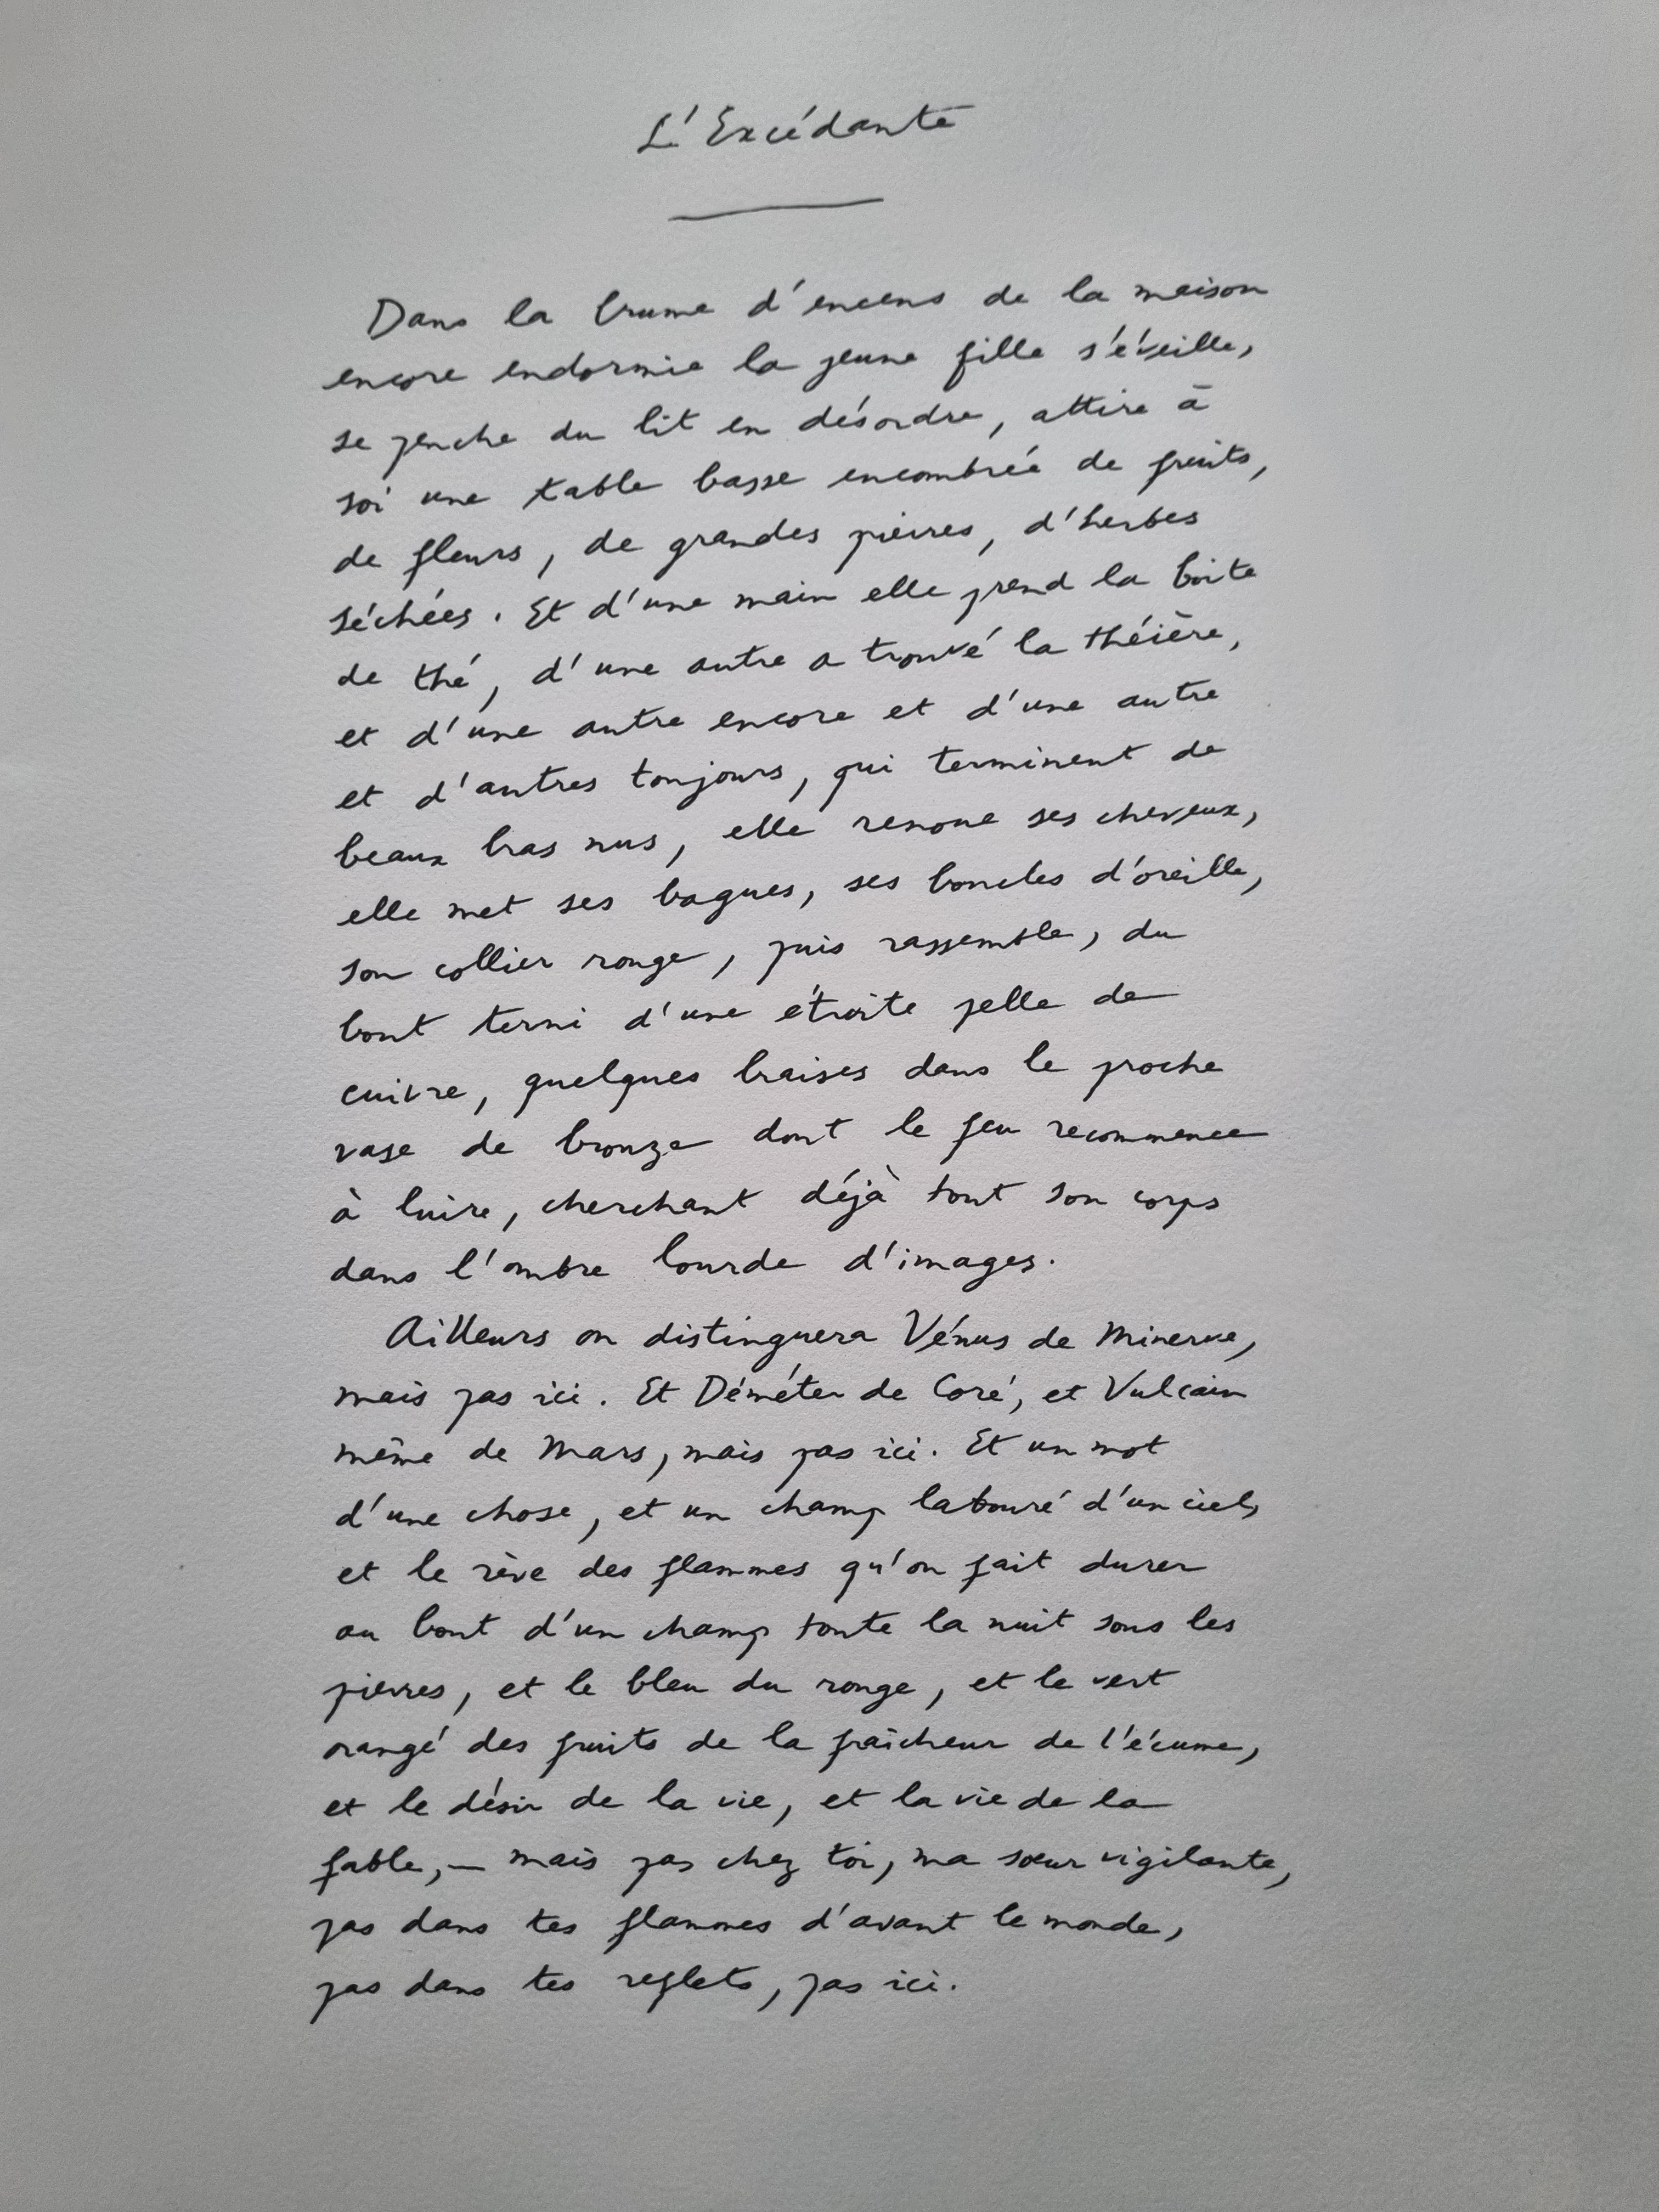 L'Excédante
Dans la brume d'encens de la maison
encore endormie la jeune fille s'éveille,
se penche du lit en désordre, attire à
soi une table basse encombrée de fruits,
de fleurs, de grandes pierres, d'herbes
séchées. Et d'une main elle prend la boîte
de thé, d'une autre a trouvé la théière,
et d'une autre encore et d'une autre
et d'autres toujours, qui terminent de
beaux bras nus, elle renoue ses cheveux,
elle met ses bagues, ses boucles d'oreille,
son collier rouge, puis rassemble, du
bout terni d'une étroite pelle de
cuivre, quelques braises dans le proche
vase de bronze dont le feu recommence
à luire, cherchant déjà tout son corps
dans l'ombre lourde d'images.
Ailleurs on distinguera Vénus de Minerve,
mais pas ici. Et Déméter de Coré, et Vulcain
même de Mars, mais pas ici. Et un mot
d'une chose, et un champ labouré d'un ciel,
et le rêve des flammes qu'on fait durer
au bout d'un champ toute la nuit sous les
pierres, et le bleu du rouge, et le vert
orangé des fruits de la fraîcheur de l'écume,
et le désir de la vie, et la vie de la
fable, — mais pas chez toi, ma sœur vigilante,
pas dans tes flammes d'avant le monde,
pas dans tes reflets, pas ici.